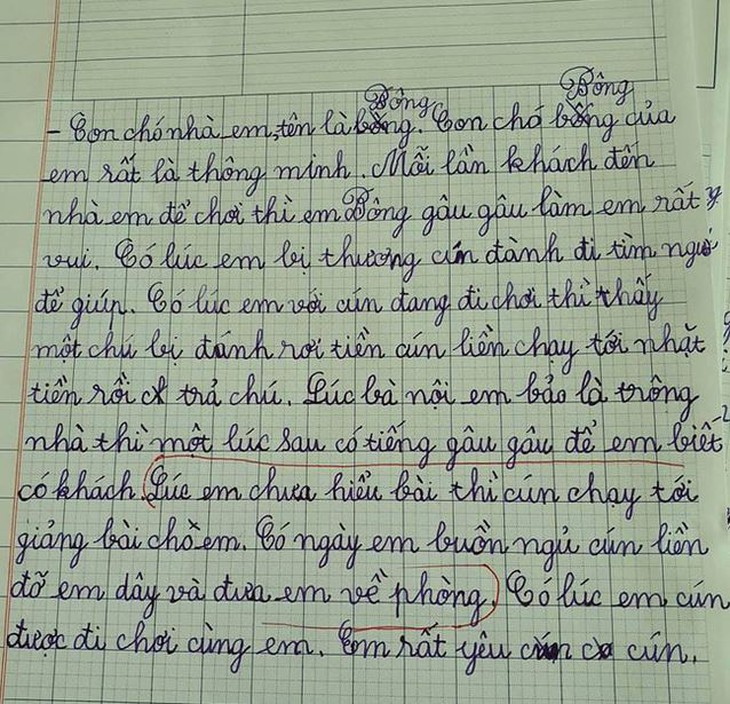 Bông Bông
- Con chó nhà em, tên là bống. Con chó bống của
em rất là thông minh. Mỗi lần khách đến
nhà em để chơi thì em Bông gâu gâu làm em rất
vui. Có lúc em bị thương cún đành đi tìm người
để giúp. Có lúc em với cún đang đi chơi thì thấy
một chú bị đánh rơi tiền cún liền chạy tới nhặt
tiền rồi trả chú. Lúc bà nội em bảo là trông
nhà thì một lúc sau có tiếng gâu gâu để em biết
có khách. Lúc em chưa hiểu bài thì cún chạy tới
giảng bài chò em. Có ngày em buồn ngủ cún liền
đỡ em dây và đưa em về phòng. Có lúc em cún
được đi chơi cùng em. Em rất yêu cún.